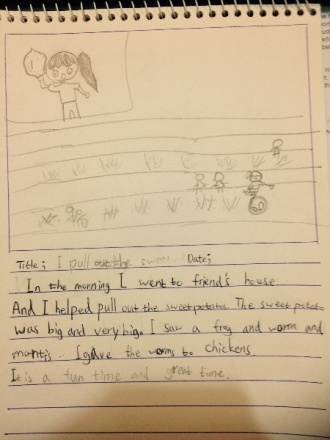 Title; I pull out the swee Date;
In the morning I went to friend's house
And I helped pull out the sweetpotatos. The sweet potato
was big and very big. I saw a frog and worm and
mantis.. I gave the worms to chickens.
It is a fun time and great time.